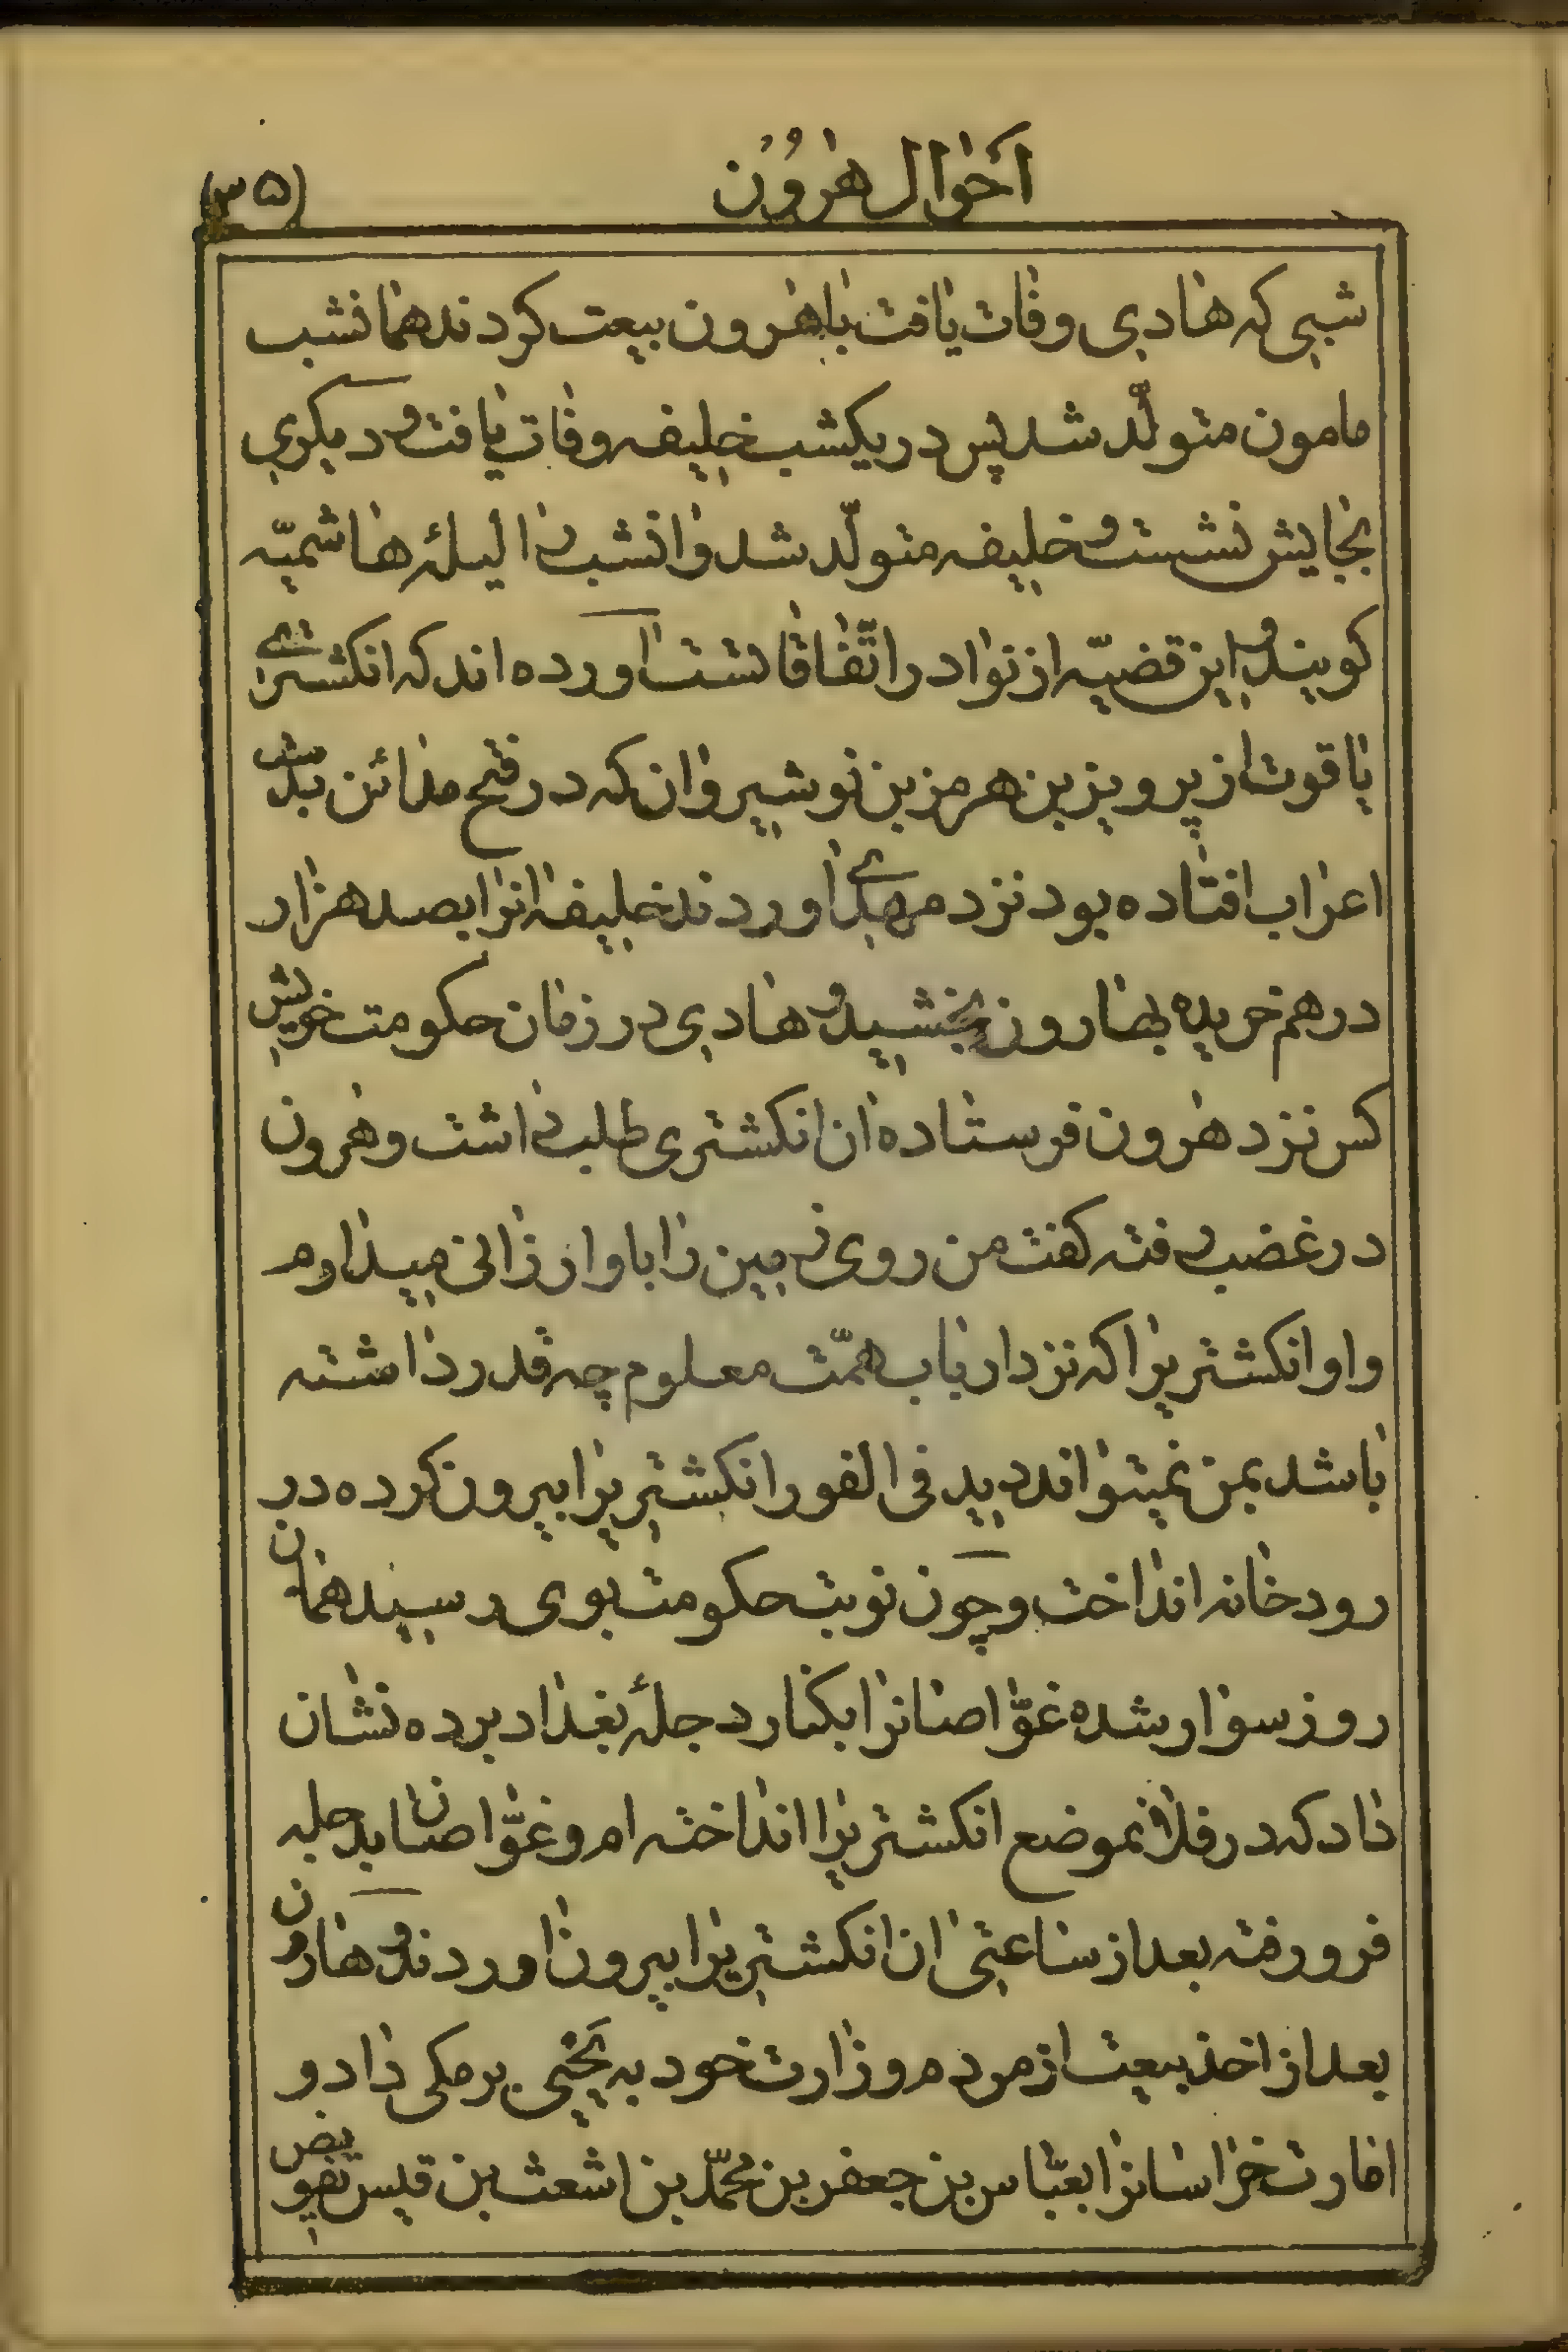 احوال هرون
(۳۵)
شبی که هادی وفات یافت با هرون بیعت کردند همانشب
مامون متولّد شد پس در یکشب خلیفه وفات یافت و دیکری
بجایش نشست و خلیفه متولّد شد و انشب را لیلهٔ هاشمیّه
کویند و این قضیّه از نوادر اتّفاقاتست اورده اند که انکشتری
یاقوت از پرویز بن هرمز بن نوشیروان که در فتح مدائن بدست
اعراب افتاده بود نزد مهدی اوردند خلیفه انرا بصد هزار
درهم خریده بهارون بخشید و هادی در زمان حکومت خویش
کس نزد هرون فرستاده ان انکشتری طلب داشت و هرون
در غضب رفته کفت من روی زمین را باو ارزانی میدارم
و او انکشتریرا که نزد ارباب همّت معلوم چه قدر داشته
باشد بمن نمیتواند دید فی الفور انکشتریرا بیرون کرده در
رودخانه انداخت و چون نوبت حکومت بوی رسید همان
روز سوار شده غوّاصانرا بکنار دجلهٔ بغداد برده نشان
داد که در فلان موضع انکشتریرا انداخته ام و غوّاصان بدجله
فرو رفته بعد از ساعتی ان انکشتریرا بیرون اوردند و هارون
بعد از اخذ بیعت از مردم وزارت خود به یحیی برمکی داد و
امارت خراسانرا بعبّاس بن جعفر بن محمّد بن اشعث بن قیس تفویض